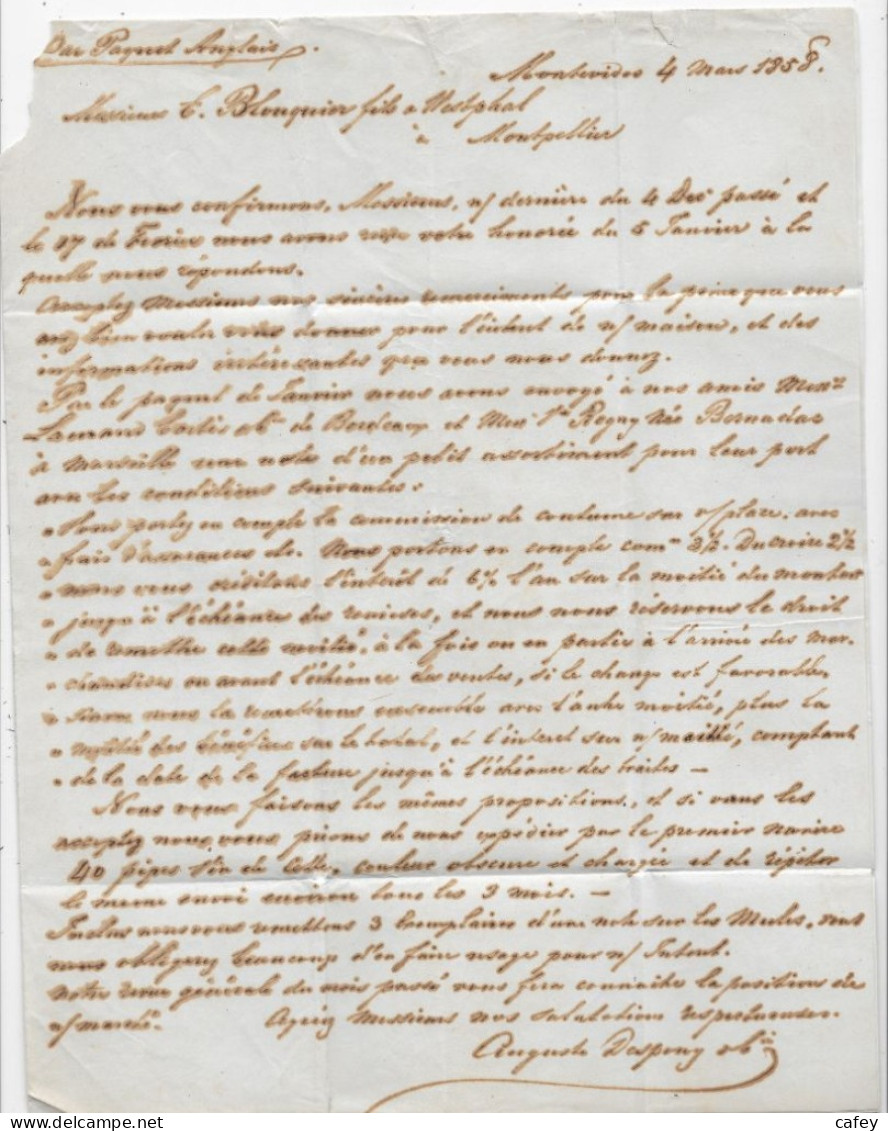 Par Paquet Anglais.
Montevideo 4 Mars 1858.
Messieurs E. Blouquier fils & Westphal
à Montpellier
Nous vous confirmons, Messieurs, n/ dernière du 4 Dec passé et
le 17 de Fevrier nous avons reçu votre honorée du 5 Janvier à la
quelle nous répondons.
Acceptez Messieurs nos sincères remerciments pour la peine que vous
avez bien voulu vous donner pour l'interet de n/ maison, et des
informations intéressantes que vous nous donnez.
Par le paquet de Janvier nous avons envoyé à nos amis Mess.rs
de Bordeaux et Mess Vve Regny née Bernadac
à Marseille une note d'un petit assortiment pour leur port
avec les conditions suivantes:
" Vous portez en compte la commission de coutume sur v/ place, avec
" frais d'assurances etc. Nous portons en compte com.on 3½. Ducroire 2½
" nous vous créditons l'intérêt de 6% l'an sur la moitié du montant
" jusqu'à l'échéance des remises, et nous nous réservons le droit
" de remettre cette moitié, à la fois ou en partie à l'arrivée des mar-
" chandises ou avant l'échéance des ventes, si le change est favorable,
" sinon nous la remettrons ensemble avec l'autre moitié, plus la
" moitié des bénéfices sur le total, et l'interet sur v/ moitié, comptant
" de la date de la facture jusqu'à l'échéance des traites —
Nous vous faisons les mêmes propositions, et si vous les
acceptez nous vous prions de nous expédier par le premier navire
40 pipes Vin de Cette, couleur obscure et chargée et de répéter
le meme envoi environ tous les 3 mois. —
Inclus nous vous remettons 3 Exemplaires d'une note sur les Mules, vous
nous obligerez beaucoup d'en faire usage pour n/ Interet.
Notre revue générale du mois passé vous fera connaitre la positions de
n/ marché. Agréez Messieurs nos salutations respectueuses.
Auguste Despouy & Cie
cafey